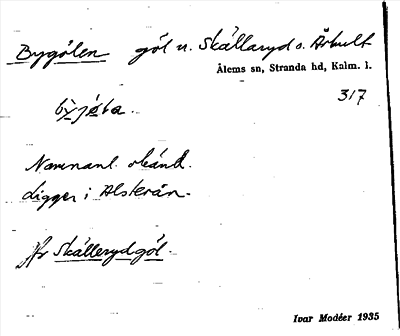 Bygölen göl n. Skälleryd o. Århult
Ålems sn, Stranda hd, Kalm. l.
317
Namnanl. okänd.
Ligger i Alsterån.
Jfr Skällerydgöl.
Ivar Modéer 1935